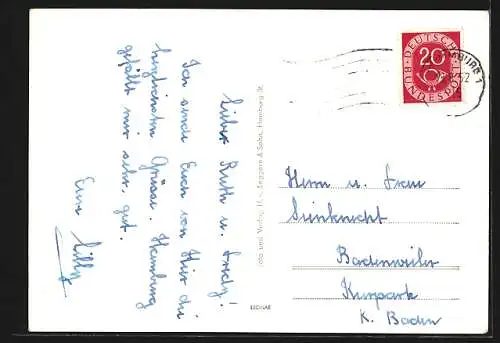 Liebe Ruth u. Fredy!
Ich sende Euch von Hier die
herzlichsten Grüsse. Hamburg
gefällt mir sehr gut.
Eure Cilly
Foto und Verlag H. v. Seggern & Sohn, Hamburg St.
DEUTSCHE BUNDESPOST
20
HAMBURG 1
52
Herrn u. Frau
Steinknecht
Badenweiler
Kurpark
K. Baden